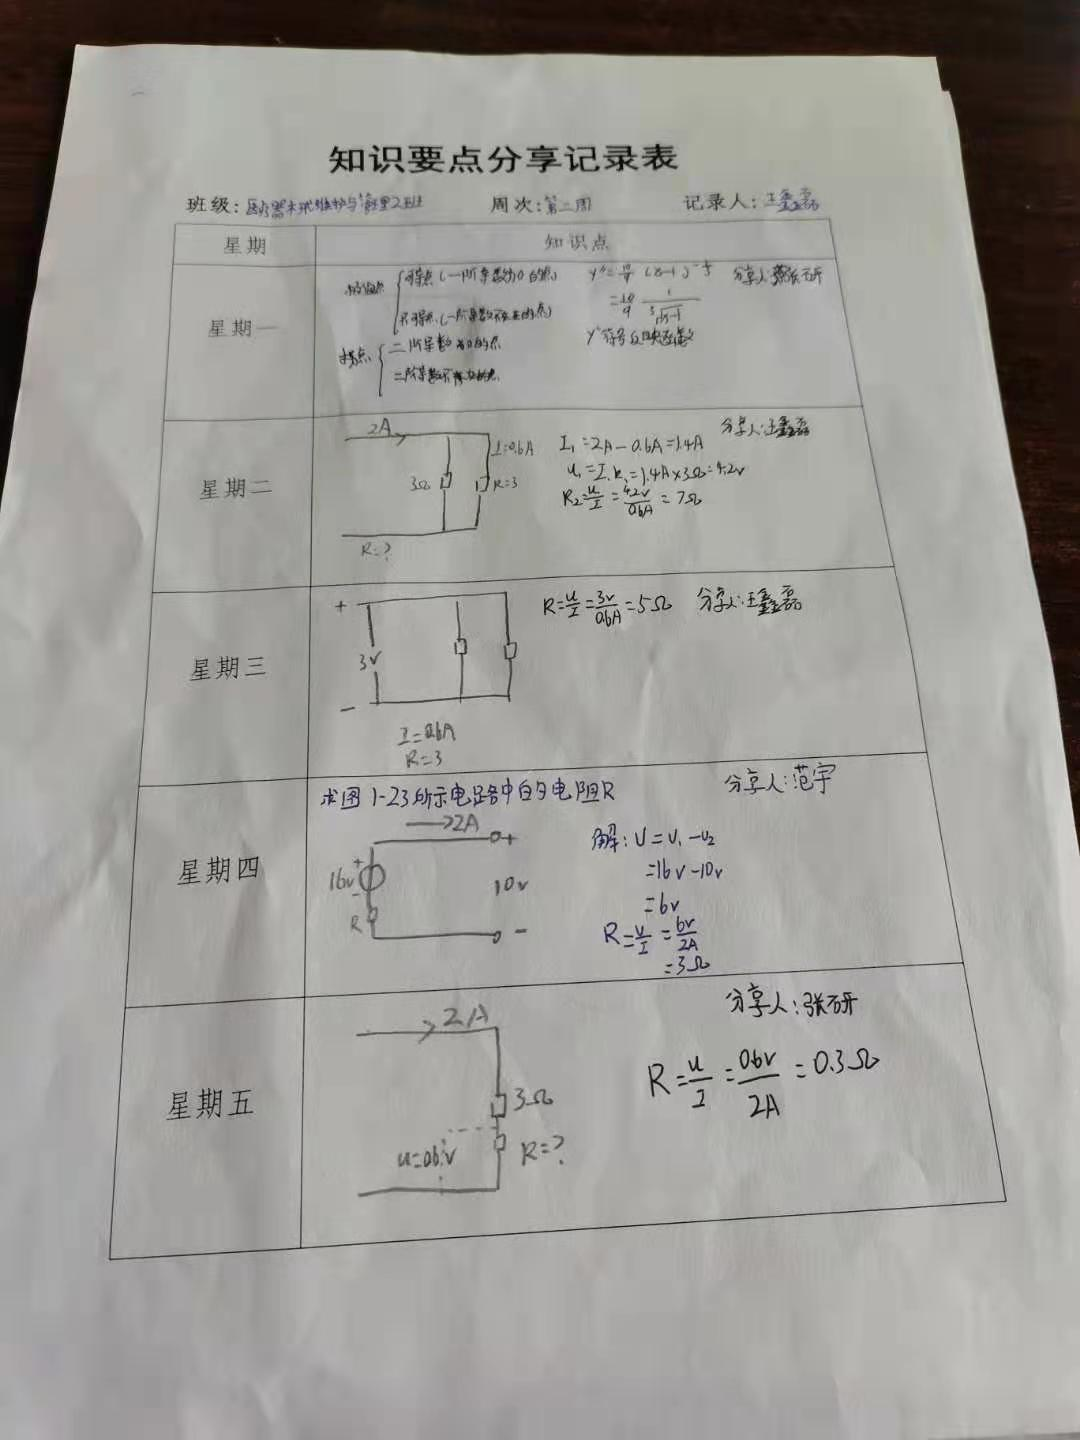 知识要点分享记录表
班级:医疗器械维护与管理2班 周次:第二周 记录人:王鑫磊
星期 知识点
星期一
可导点(一阶导数为0的点)
不可导点(一阶导数不存在的点)
拐点
二阶导数为0的点
二阶导数不存在的点
分享人:
星期二
2A
I=0.6A
3Ω
R=3
R=?
I₁=2A-0.6A=1.4A
u₁=I₁R₁=1.4A×3Ω=4.2v
R₂=u/I=4.2v/0.6A=7Ω
分享人:王鑫磊
星期三
+
3v
-
I=0.6A
R=3
R=u/I=3v/0.6A=5Ω
分享人:王鑫磊
星期四
求图1-23所示电路中的电阻R
分享人:范宇
2A
+
16v
+
-
R
10v
-
解:U=U₁-u₂
=16v-10v
=6v
R=u/I=6v/2A
=3Ω
星期五
分享人:张研
2A
3Ω
u=0.6v
R=?
R=u/I=0.6v/2A=0.3Ω